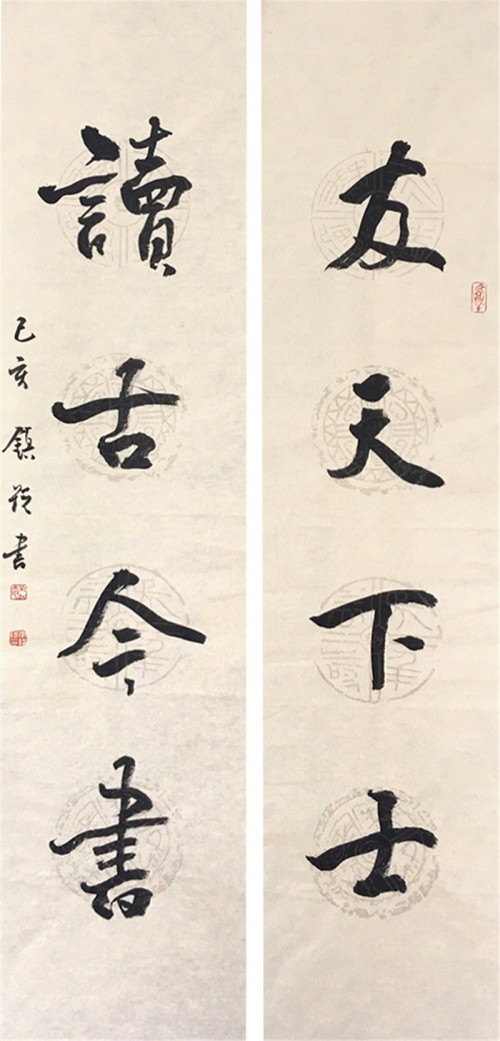 友天下士
讀古今書
己亥 鎮
書